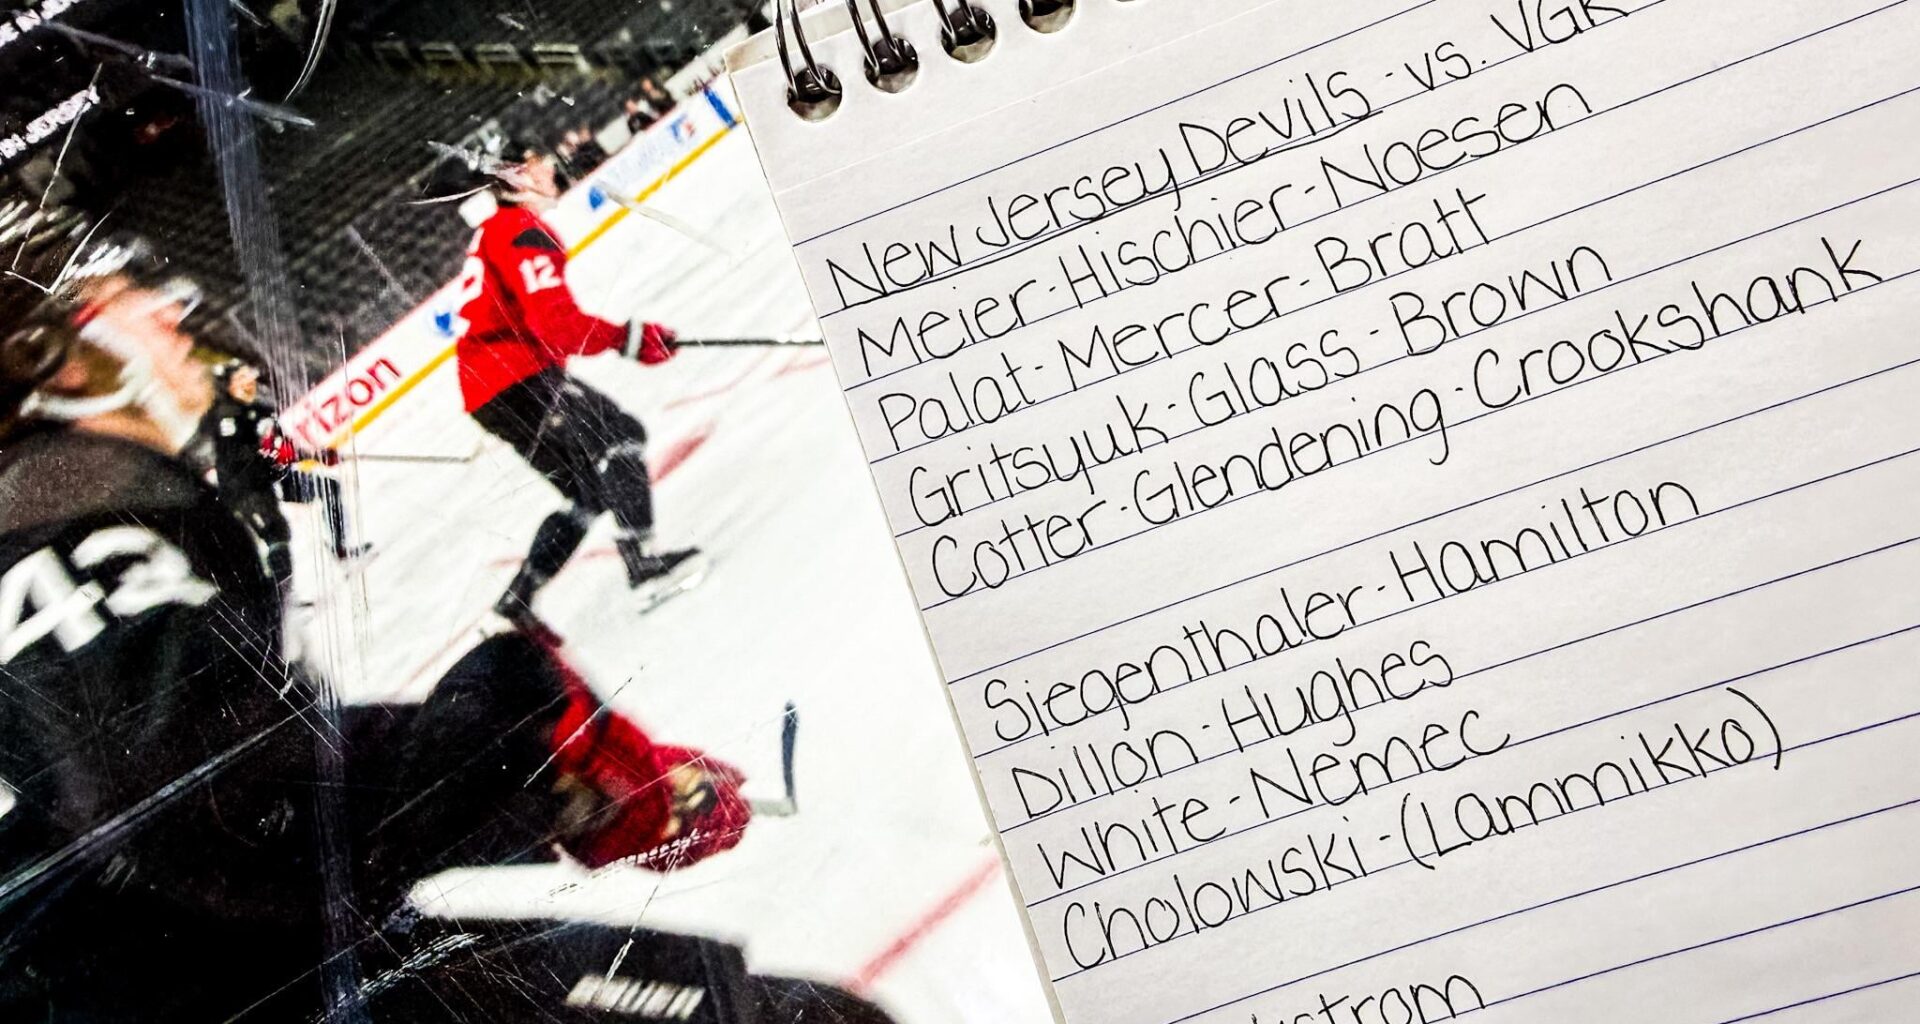 New Jersey Devils - vs. VGK
Meier - Hischier - Noesen
Palat - Mercer - Bratt
Gritsyuk - Glass - Brown
Cotter - Glendening - Crookshank
Siegenthaler - Hamilton
Dillon - Hughes
White - Nemec
Cholowski - (Lammikko)
12
rizon
43